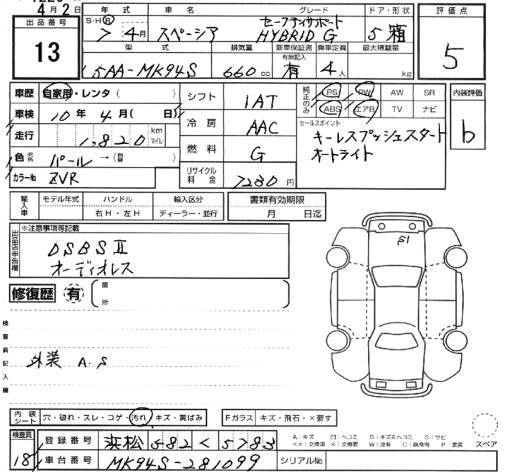 4月2日
出品番号 13
年式 車名 グレード ドア・形状 評価点
S・H・R 7年4月 スペーシア セーフティサポート HYBRID G 5 箱 5
型式 排気量 新車保証書 乗車定員 最大積載量
有無記入
5AA-MK94S 660cc 有 4人 kg
車歴 自家用・レンタ( ) シフト 1AT 純正のみ PS PW AW SR 内装評価
ABS エアB TV ナビ b
車検 10年4月( 日) 冷房 AAC セールスポイント
走行 1,820 km マイル キーレスプッシュスタート
オートライト
色 元色 パール→(替 ) 燃料 G
カラーNo ZVR リサイクル料金 7280円
輸入車 モデル年式 ハンドル 輸入区分 書類有効期限
右H・左H ディーラー・並行 月 日迄
出品店申告欄 ※注意事項等記載
DSBSⅡ
オーディオレス
修復歴 有 箇所
検査員記入欄
外装 A.S
S1
内装シート 穴・破れ・スレ・コゲ・汚れ・キズ・黄ばみ Fガラス キズ・飛石・×要す
スペア
検査員 18 登録番号 浜松 582 く 5783
車台番号 MK94S-281099 シリアルNo.